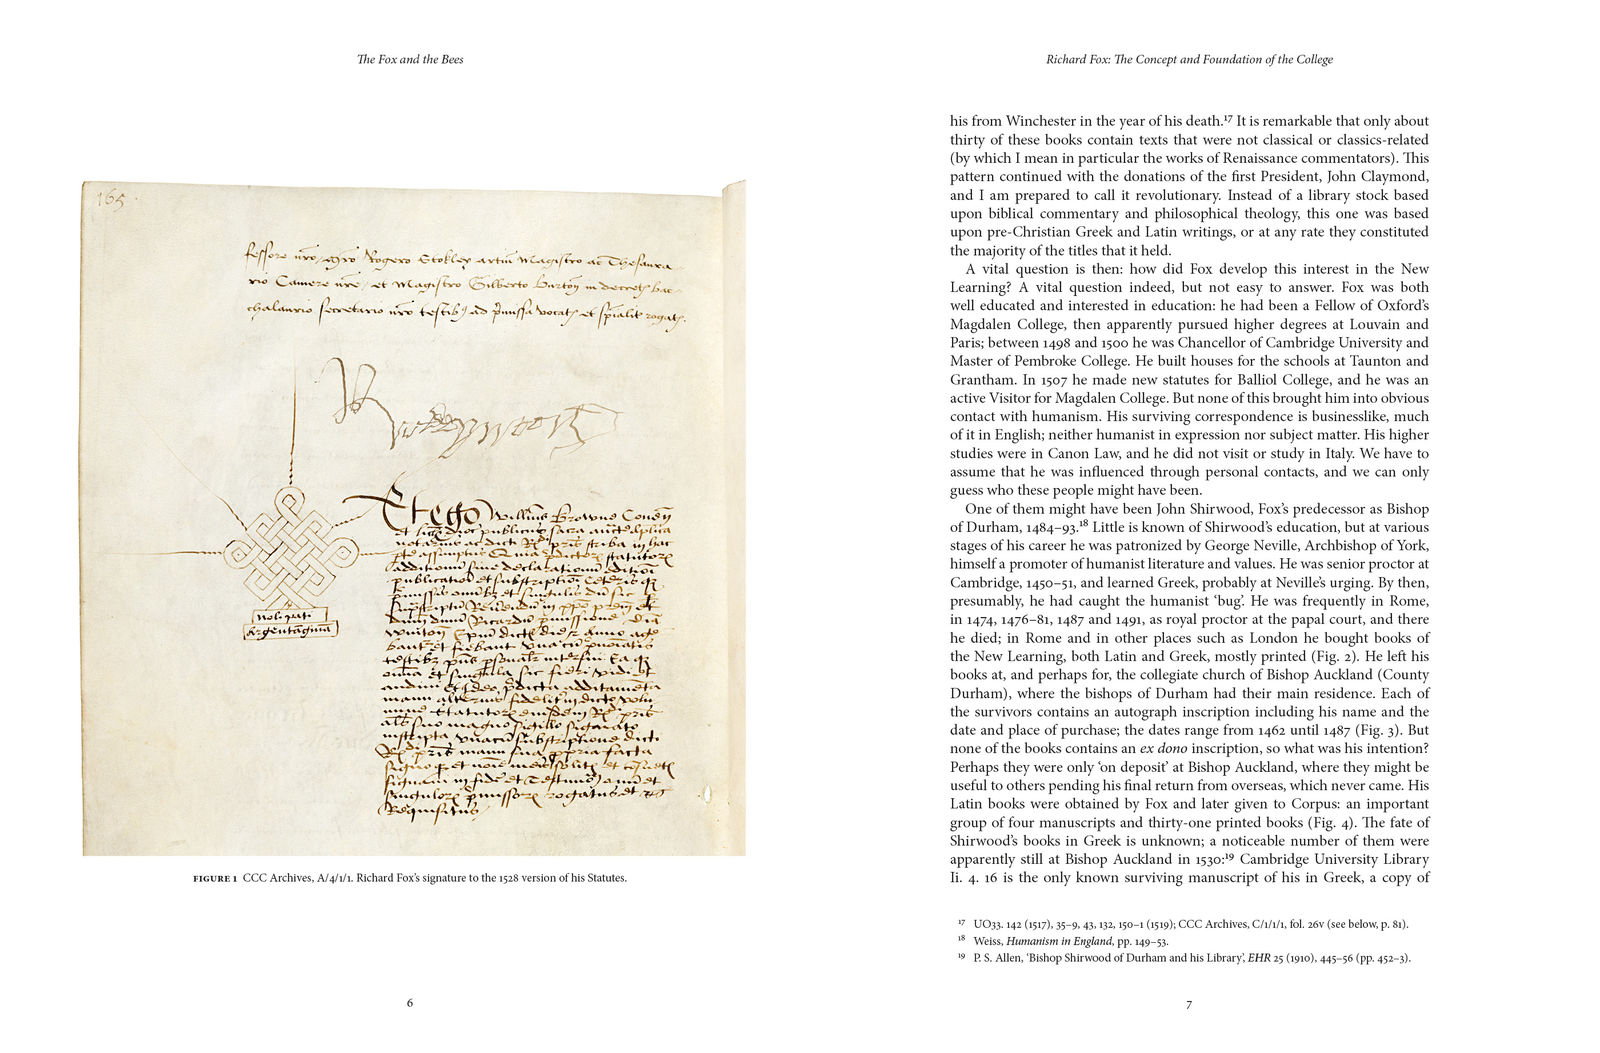 The Fox and the Bees
165
fessore nro Rogero Stokley artiu Magistro ac Thesaura
rio Camere nre, et Magistro Gilberto Barton in bac
chalaurio secretario nro ad et
Et ego Willmus Browne
publicus
et
FIGURE 1 CCC Archives, A/4/1/1. Richard Fox's signature to the 1528 version of his Statutes.
6
Richard Fox: The Concept and Foundation of the College
his from Winchester in the year of his death.¹⁷ It is remarkable that only about
thirty of these books contain texts that were not classical or classics-related
(by which I mean in particular the works of Renaissance commentators). This
pattern continued with the donations of the first President, John Claymond,
and I am prepared to call it revolutionary. Instead of a library stock based
upon biblical commentary and philosophical theology, this one was based
upon pre-Christian Greek and Latin writings, or at any rate they constituted
the majority of the titles that it held.
A vital question is then: how did Fox develop this interest in the New
Learning? A vital question indeed, but not easy to answer. Fox was both
well educated and interested in education: he had been a Fellow of Oxford's
Magdalen College, then apparently pursued higher degrees at Louvain and
Paris; between 1498 and 1500 he was Chancellor of Cambridge University and
Master of Pembroke College. He built houses for the schools at Taunton and
Grantham. In 1507 he made new statutes for Balliol College, and he was an
active Visitor for Magdalen College. But none of this brought him into obvious
contact with humanism. His surviving correspondence is businesslike, much
of it in English; neither humanist in expression nor subject matter. His higher
studies were in Canon Law, and he did not visit or study in Italy. We have to
assume that he was influenced through personal contacts, and we can only
guess who these people might have been.
One of them might have been John Shirwood, Fox's predecessor as Bishop
of Durham, 1484–93.¹⁸ Little is known of Shirwood's education, but at various
stages of his career he was patronized by George Neville, Archbishop of York,
himself a promoter of humanist literature and values. He was senior proctor at
Cambridge, 1450–51, and learned Greek, probably at Neville's urging. By then,
presumably, he had caught the humanist 'bug'. He was frequently in Rome,
in 1474, 1476–81, 1487 and 1491, as royal proctor at the papal court, and there
he died; in Rome and in other places such as London he bought books of
the New Learning, both Latin and Greek, mostly printed (Fig. 2). He left his
books at, and perhaps for, the collegiate church of Bishop Auckland (County
Durham), where the bishops of Durham had their main residence. Each of
the survivors contains an autograph inscription including his name and the
date and place of purchase; the dates range from 1462 until 1487 (Fig. 3). But
none of the books contains an ex dono inscription, so what was his intention?
Perhaps they were only 'on deposit' at Bishop Auckland, where they might be
useful to others pending his final return from overseas, which never came. His
Latin books were obtained by Fox and later given to Corpus: an important
group of four manuscripts and thirty-one printed books (Fig. 4). The fate of
Shirwood's books in Greek is unknown; a noticeable number of them were
apparently still at Bishop Auckland in 1530:¹⁹ Cambridge University Library
Ii. 4. 16 is the only known surviving manuscript of his in Greek, a copy of
17 UO33. 142 (1517), 35–9, 43, 132, 150–1 (1519); CCC Archives, C/1/1/1, fol. 26v (see below, p. 81).
18 Weiss, Humanism in England, pp. 149–53.
19 P. S. Allen, 'Bishop Shirwood of Durham and his Library', EHR 25 (1910), 445–56 (pp. 452–3).
7